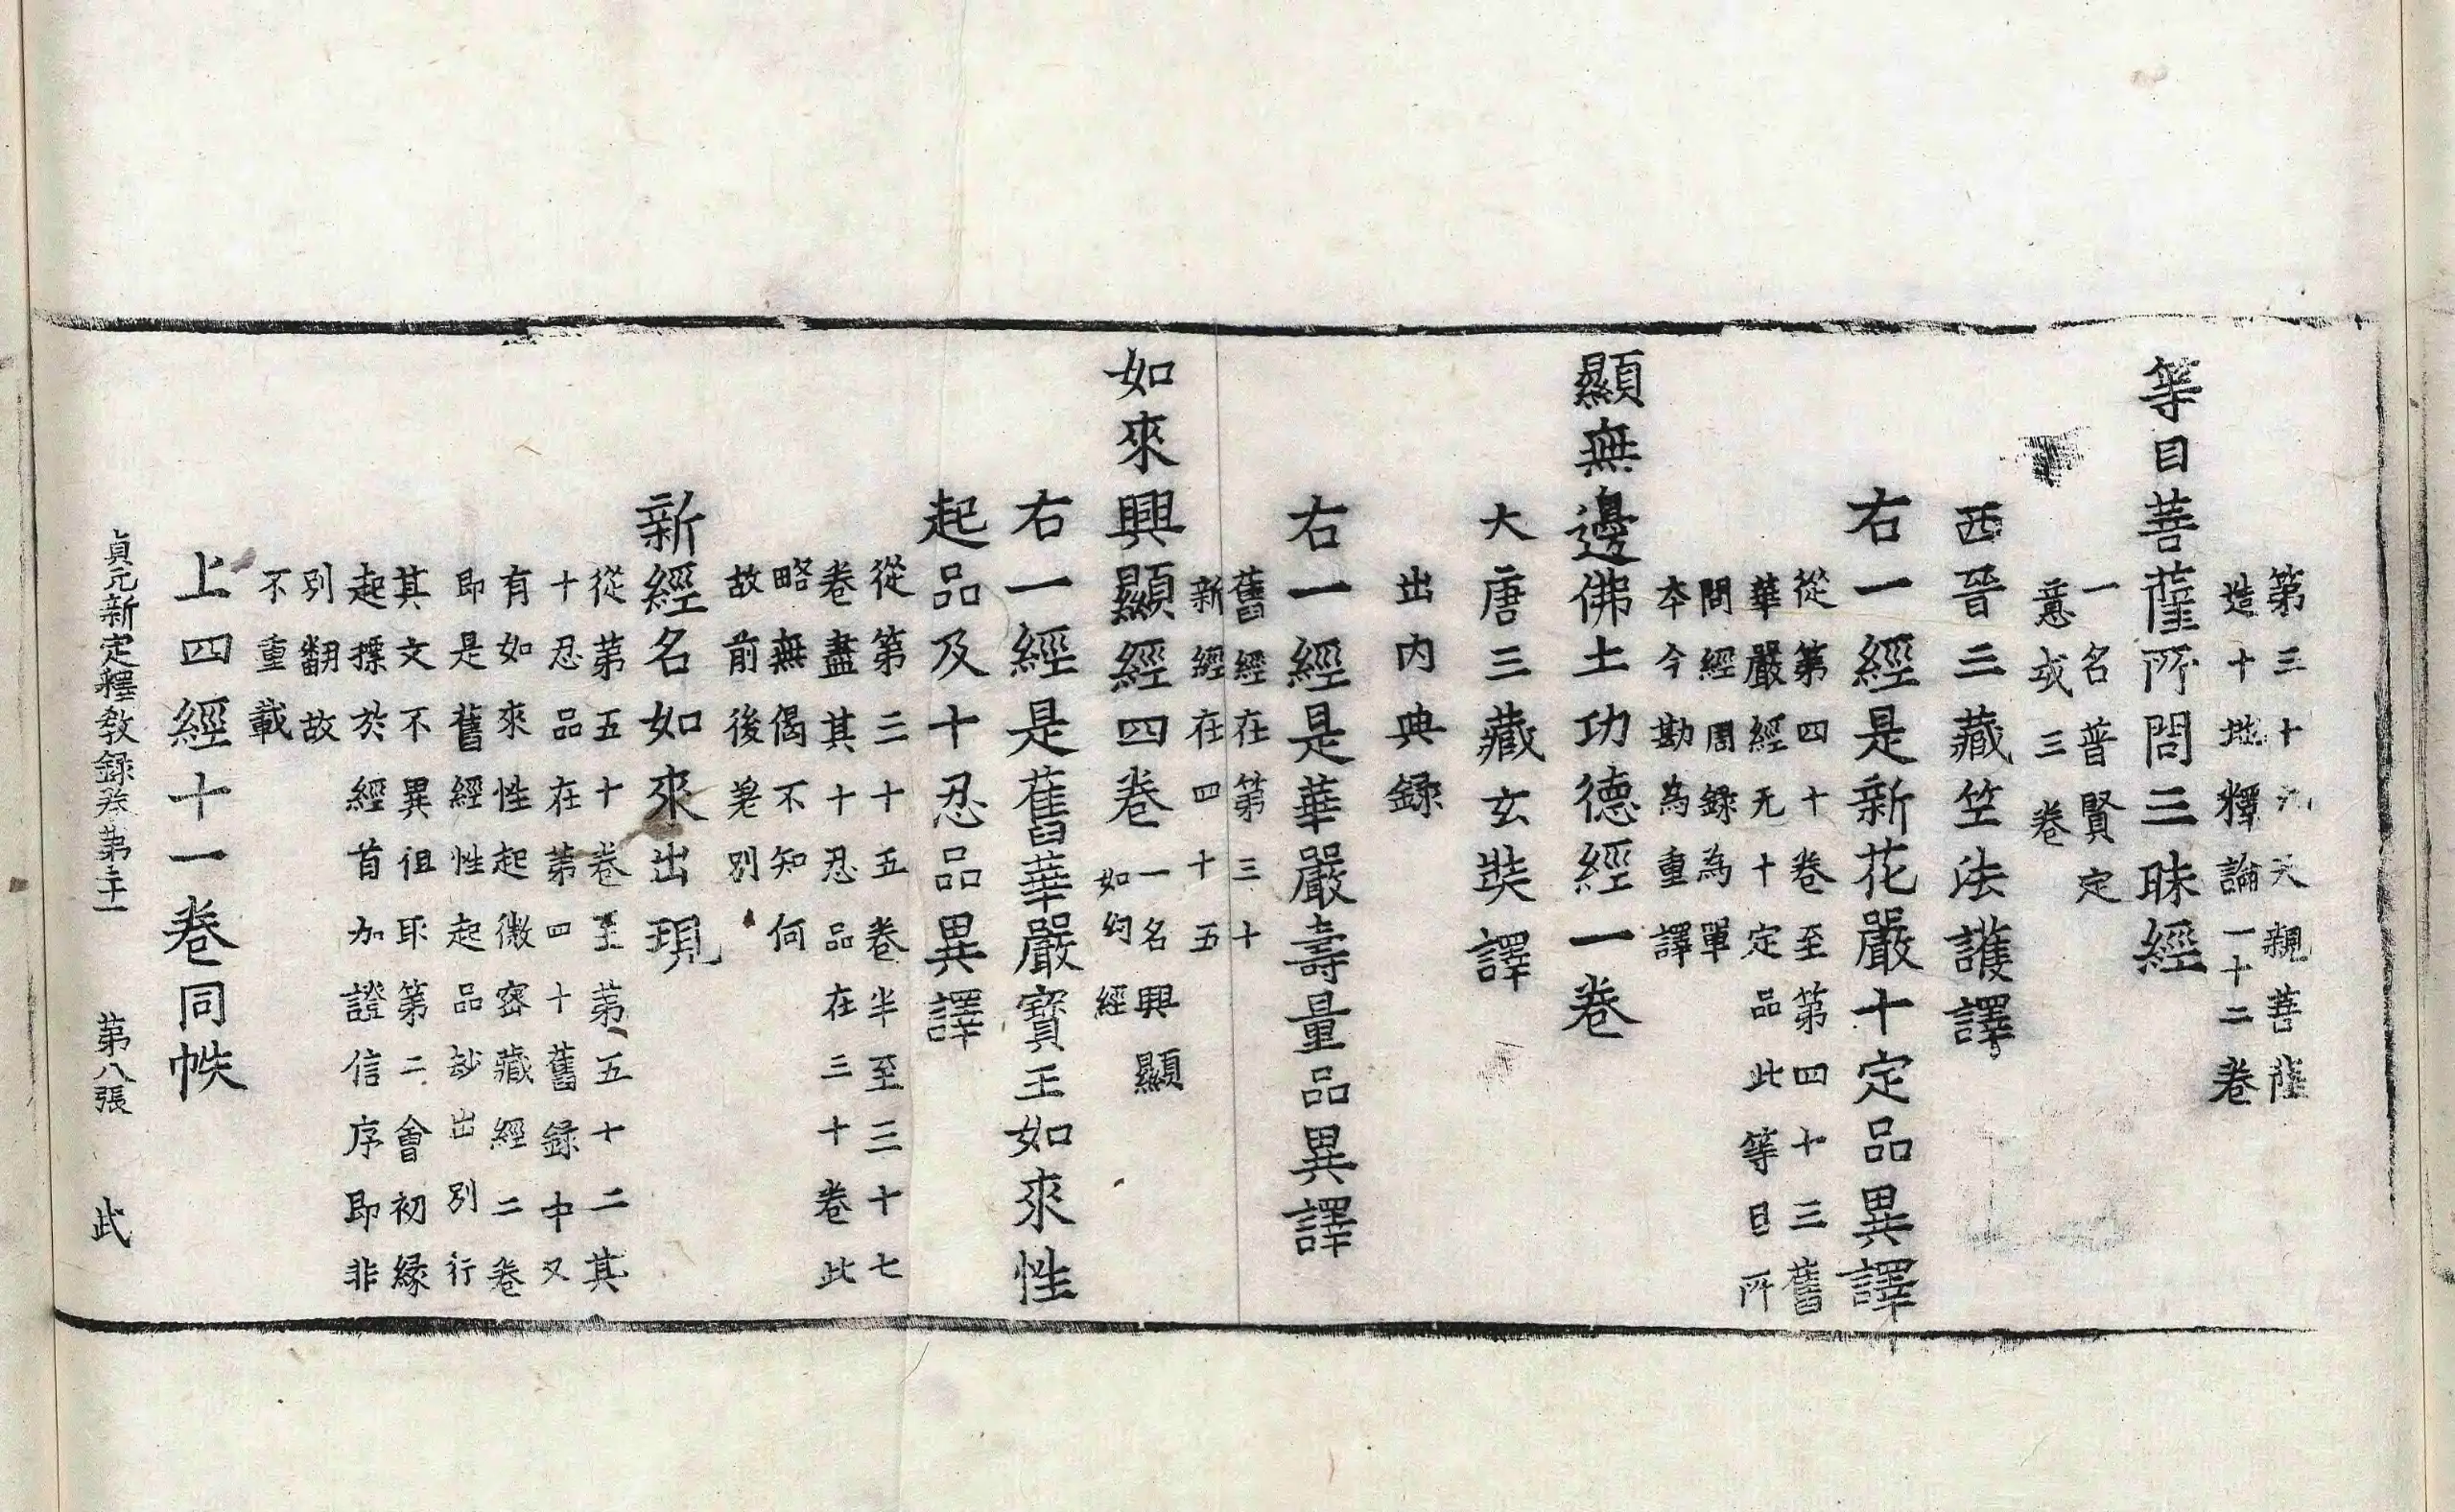 第三十九天親菩薩
造十地釋論一十二卷
等目菩薩所問三昧經
一名普賢定
意或三卷
西晉三藏竺法護譯
右一經是新花嚴十定品異譯
從第四十卷至第四十三舊
華嚴經无十定品此等目所
問經周録為單
本今勘為重譯
顯無邊佛土功德經一卷
大唐三藏玄奘譯
出内典録
右一經是華嚴壽量品異譯
舊經在第三十
新經在四十五
如來興顯經四卷
一名興顯
如幻經
右一經是舊華嚴寶王如來性
起品及十忍品異譯
從第三十五卷半至三十七
卷盡其十忍品在三十卷此
略無偈不知何
故前後差別
新經名如來出現
從第五十卷至第五十二其
十忍品在第四十舊録中又
有如來性起微密藏經二卷
即是舊經性起品抄出別行
其文不異徂耶第二會初縁
起摽於經首加證信序即非
別翻故
不重載
上四經十一卷同帙
貞元新定釋教録卷第二十一 第八張 武